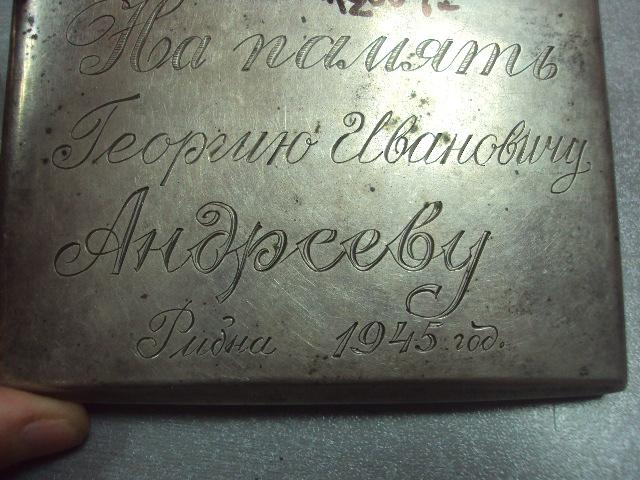 На память
Георгию Ивановичу
Андрееву
Рибна 1945 год.